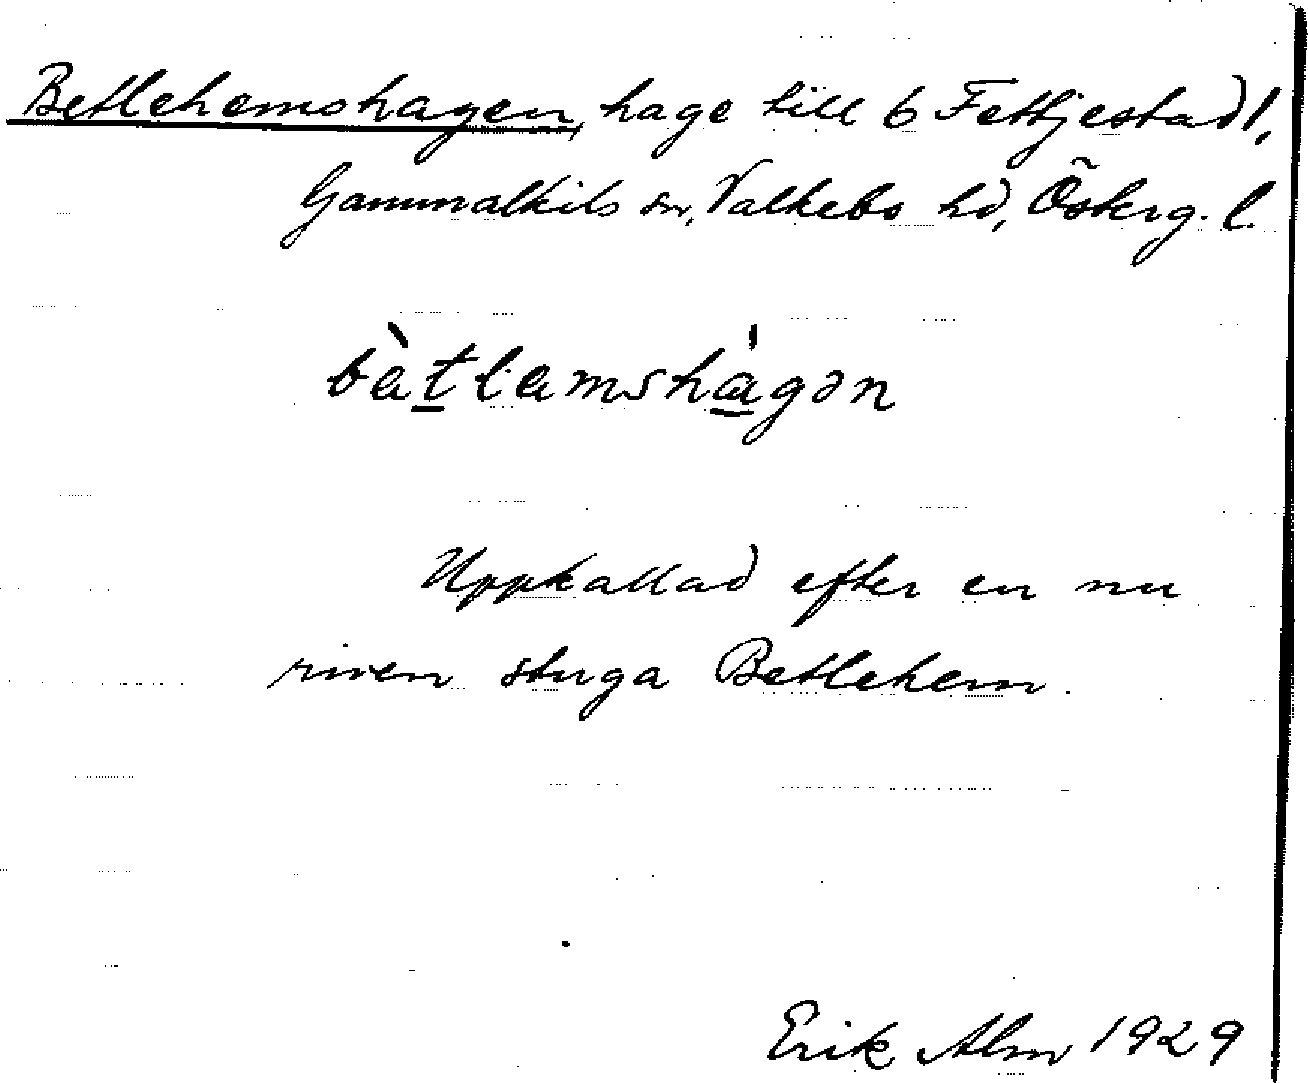 Betlehemshagen, hage till 6 Fettjestad 1,
Gammalkils sn, Valkebo hd, Österg. l.
bὰt̲lamshὰ̲gən
Uppkallad efter en nu
riven stuga Betlehem.
Erik Alm 1929